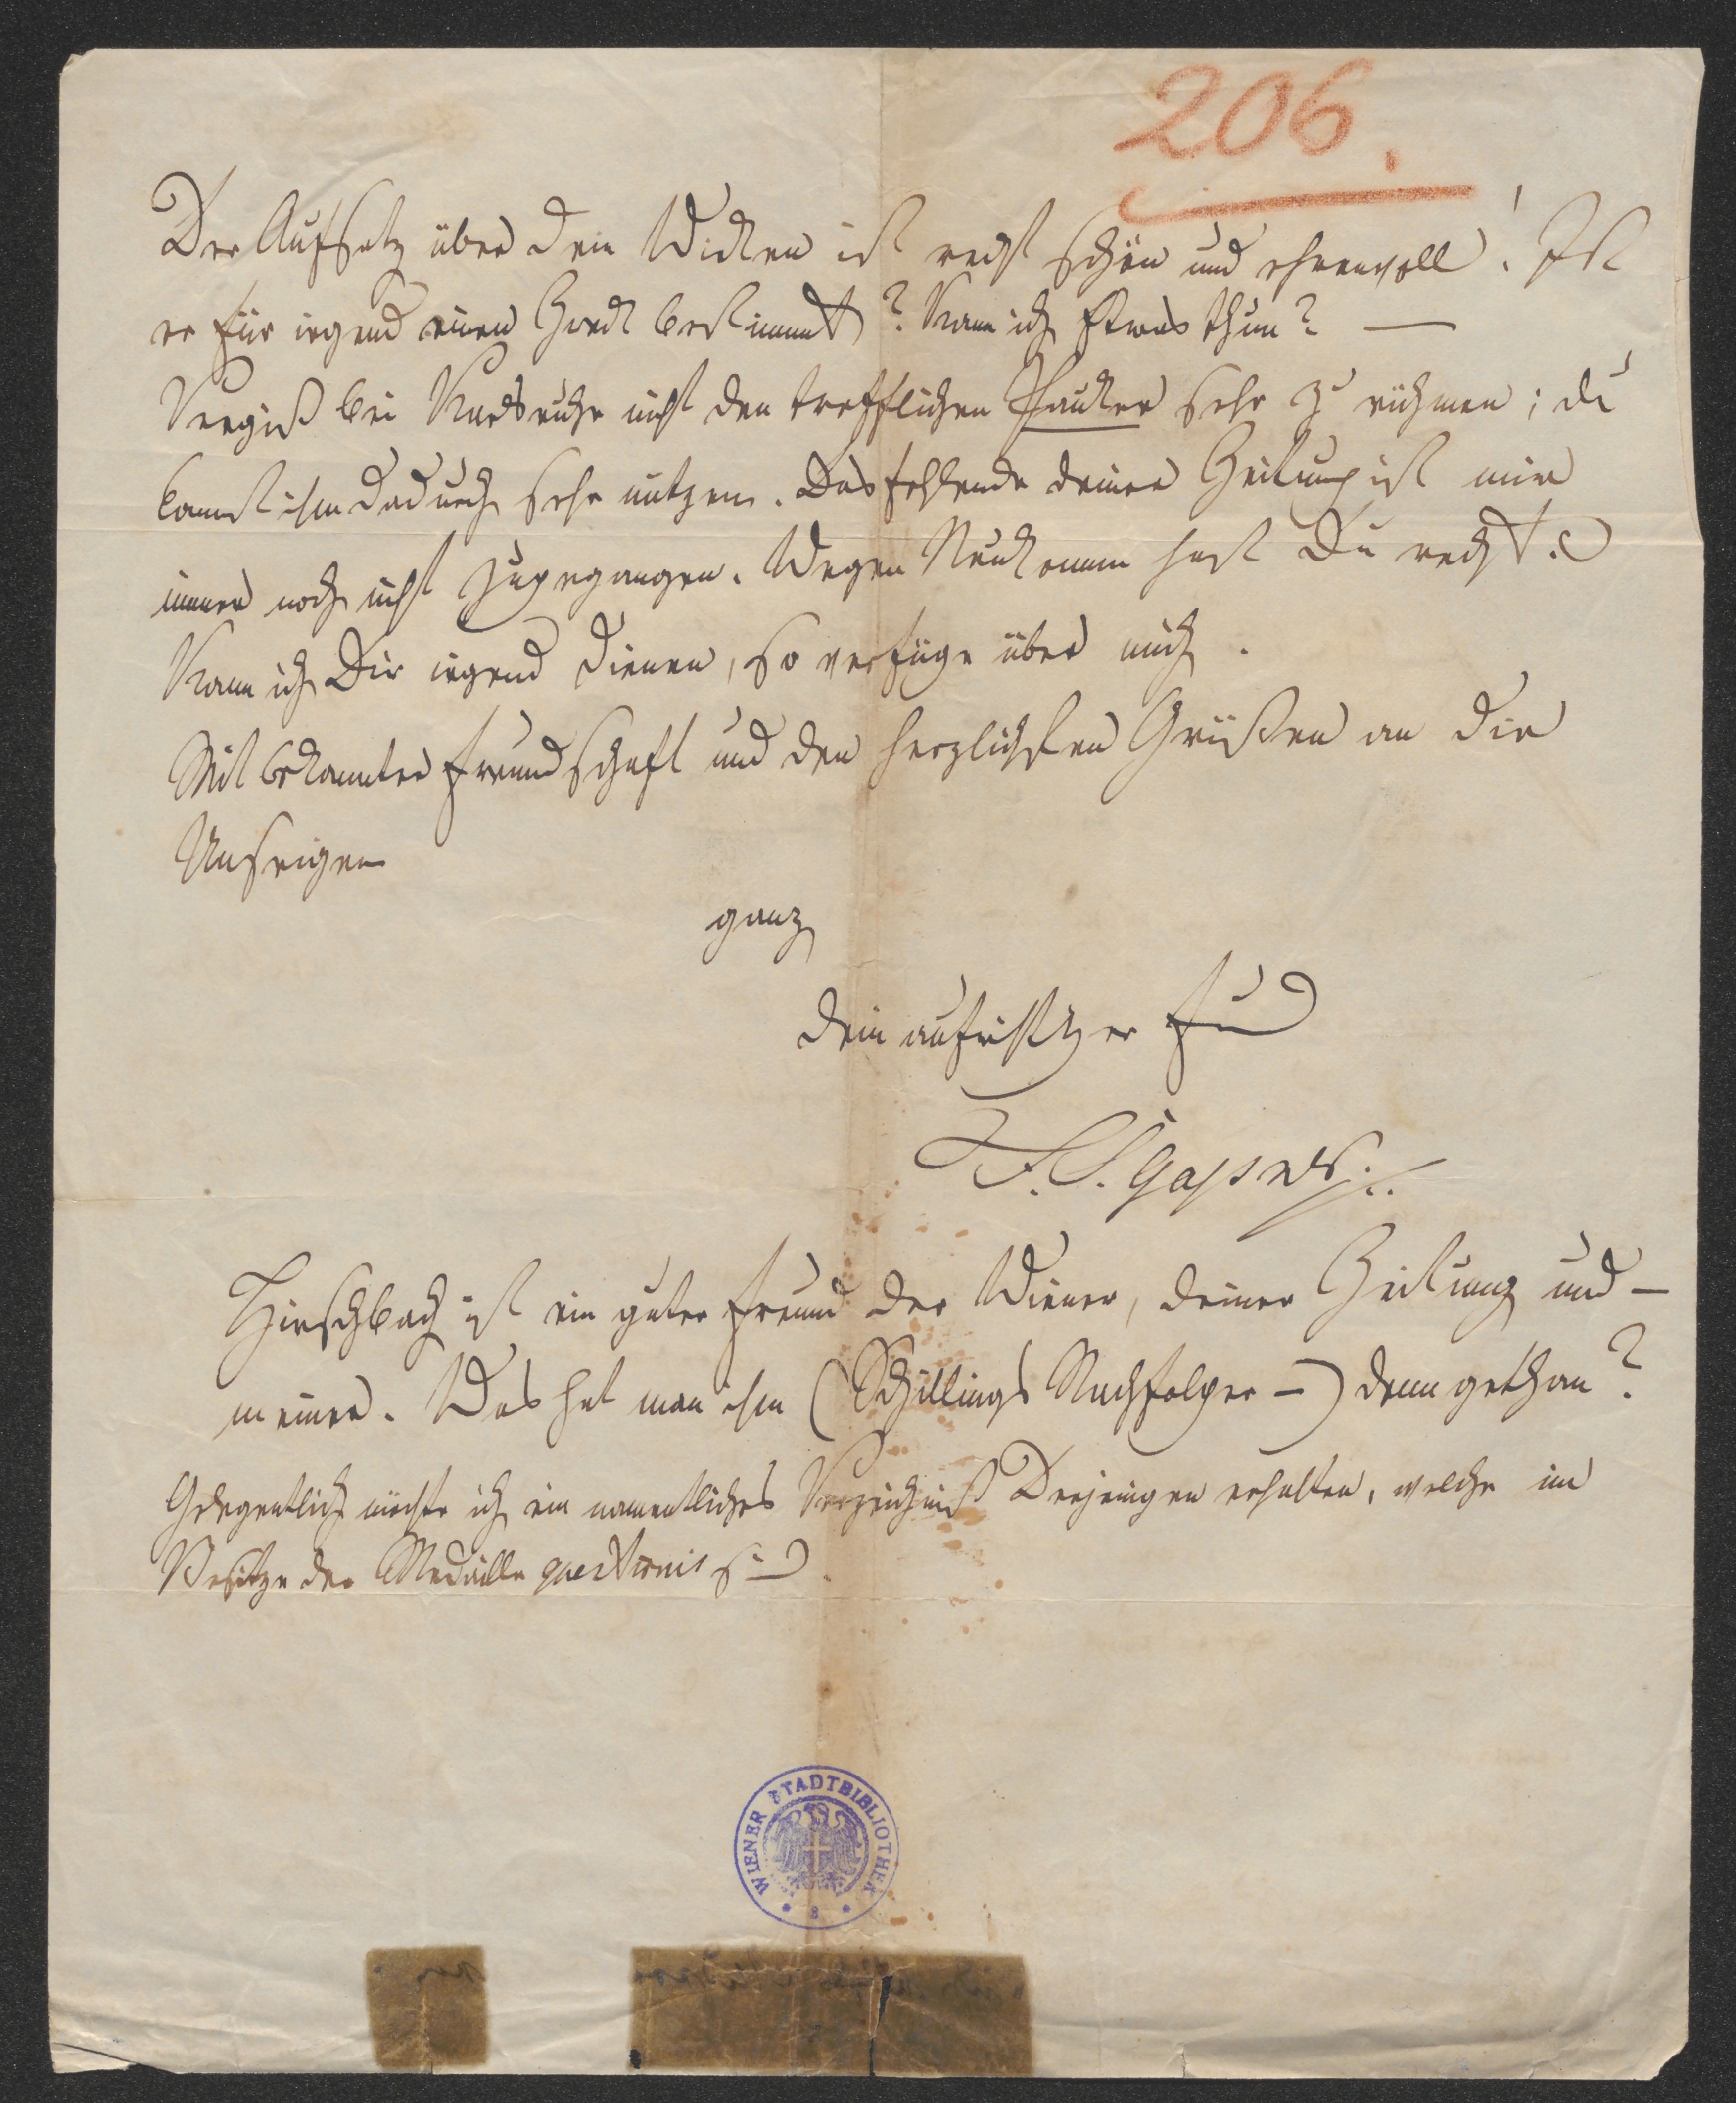 206.
Der Aufsatz über dein Wirken ist recht schön und ehrenvoll! Ist
er für irgend einen Zweck bestimmt? Kann ich Etwas thun? —
Vergiß bei Karlsruhe nicht den trefflichen Pauker sehr zu rühmen; du
kannst ihm dadurch sehr nützen. Das Fehlende deiner Zeitung ist mir
immer noch nicht zugegangen. Wegen Neukomm hast Du recht.
Kann ich Dir irgend dienen, so verfüge über mich.
Mit bekannter Freundschaft und den herzlichsten Grüßen an die
Unsrigen
ganz
dein aufrichtiger
F. S. Gaßner
Hirschbach ist ein guter Freund der Wiener, deiner Zeitung und —
meiner. Was hat man ihm (Schillings Nachfolger —) denn gethan?
Gelegentlich möchte ich ein namentliches Verzeichniß Derjenigen erhalten, welche im
Besitze der Medaille sind.
WIENER STADTBIBLIOTHEK